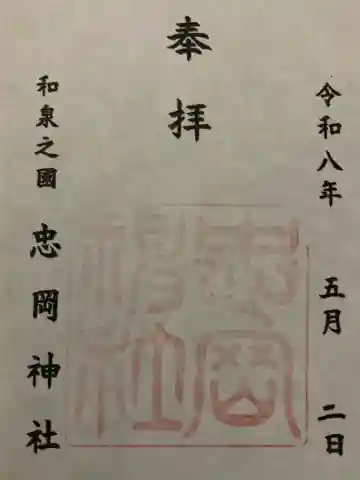 令和八年 五月 二日
奉拝
和泉之國 忠岡神社
忠岡
神社